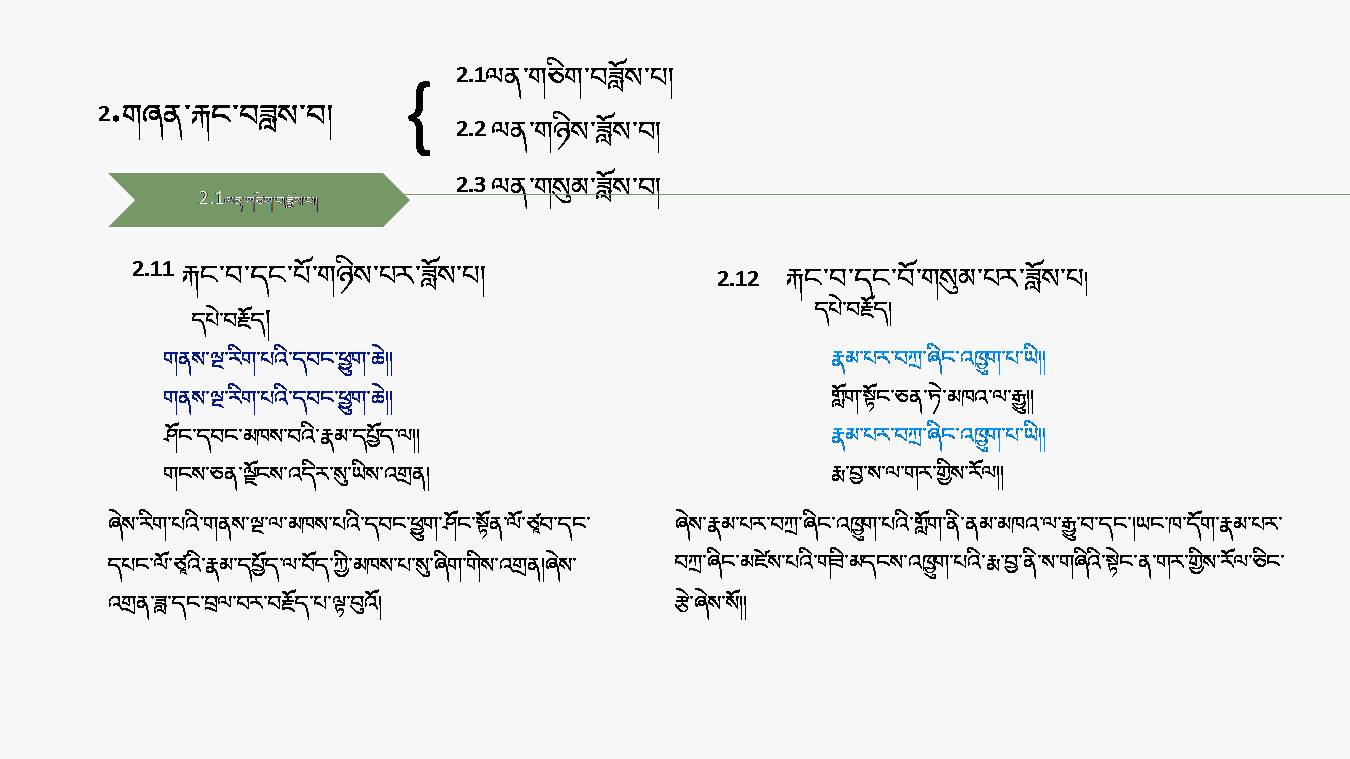 2.1ལན་གཅིག་བཟློས་པ།
2.གཞན་རྐང་བཟླས་བ།
2.2 ལན་གཉིས་ཟློས་བ།
2.3 ལན་གསུམ་ཟློས་བ།
2.1ལན་གཅིག་བཟློས་པ།
2.11 རྐང་བ་དང་པོ་གཉིས་པར་ཟློས་པ།
དཔེ་བརྗོད།
གནས་ལྔ་རིག་པའི་དབང་ཕྱུག་ཆེ།།
གནས་ལྔ་རིག་པའི་དབང་ཕྱུག་ཆེ།།
ཤོང་དབང་མཁས་བའི་རྣམ་དཔྱོད་ལ།།
གངས་ཅན་ལྗོངས་འདིར་སུ་ཡིས་འགྲན།
ཞེས་རིག་པའི་གནས་ལྔ་ལ་མཁས་པའི་དབང་ཕྱུག་ཤོང་སྟོན་ལོ་ཙཱབ་དང་
དཔང་ལོ་ཙཱའི་རྣམ་དཔྱོད་ལ་བོད་ཀྱི་མཁས་པ་སུ་ཞིག་གིས་འགྲན།ཞེས་
འགྲན་ཟླ་དང་བྲལ་བར་བརྗོད་པ་ལྟ་བུའོ།
2.12 རྐང་བ་དང་པོ་གསུམ་པར་ཟློས་པ།
དཔེ་བརྗོད།
རྣམ་པར་བཀྲ་ཞིང་འཁྱུག་པ་ཡི།།
གློག་སྟོང་ཅན་ཏེ་མཁའ་ལ་རྒྱུ།།
རྣམ་པར་བཀྲ་ཞིང་འཁྱུག་པ་ཡི།།
རྨ་བྱ་ས་ལ་གར་གྱིས་རོལ།།
ཞེས་རྣམ་པར་བཀྲ་ཞིང་འཁྱུག་པའི་གློག་ནི་ནམ་མཁའ་ལ་རྒྱུ་བ་དང་།ཡང་ཁ་དོག་རྣམ་པར་
བཀྲ་ཞིང་མཛེས་པའི་གཟི་མདངས་འཁྱུག་པའི་རྨ་བྱ་ནི་ས་གཞིའི་སྟེང་ན་གར་གྱིས་རོལ་ཅིང་
རྩེ་ཞེས་སོ།།